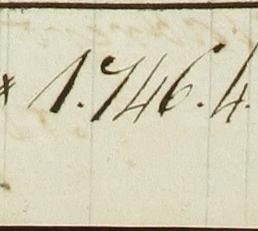 * 1.746.4.